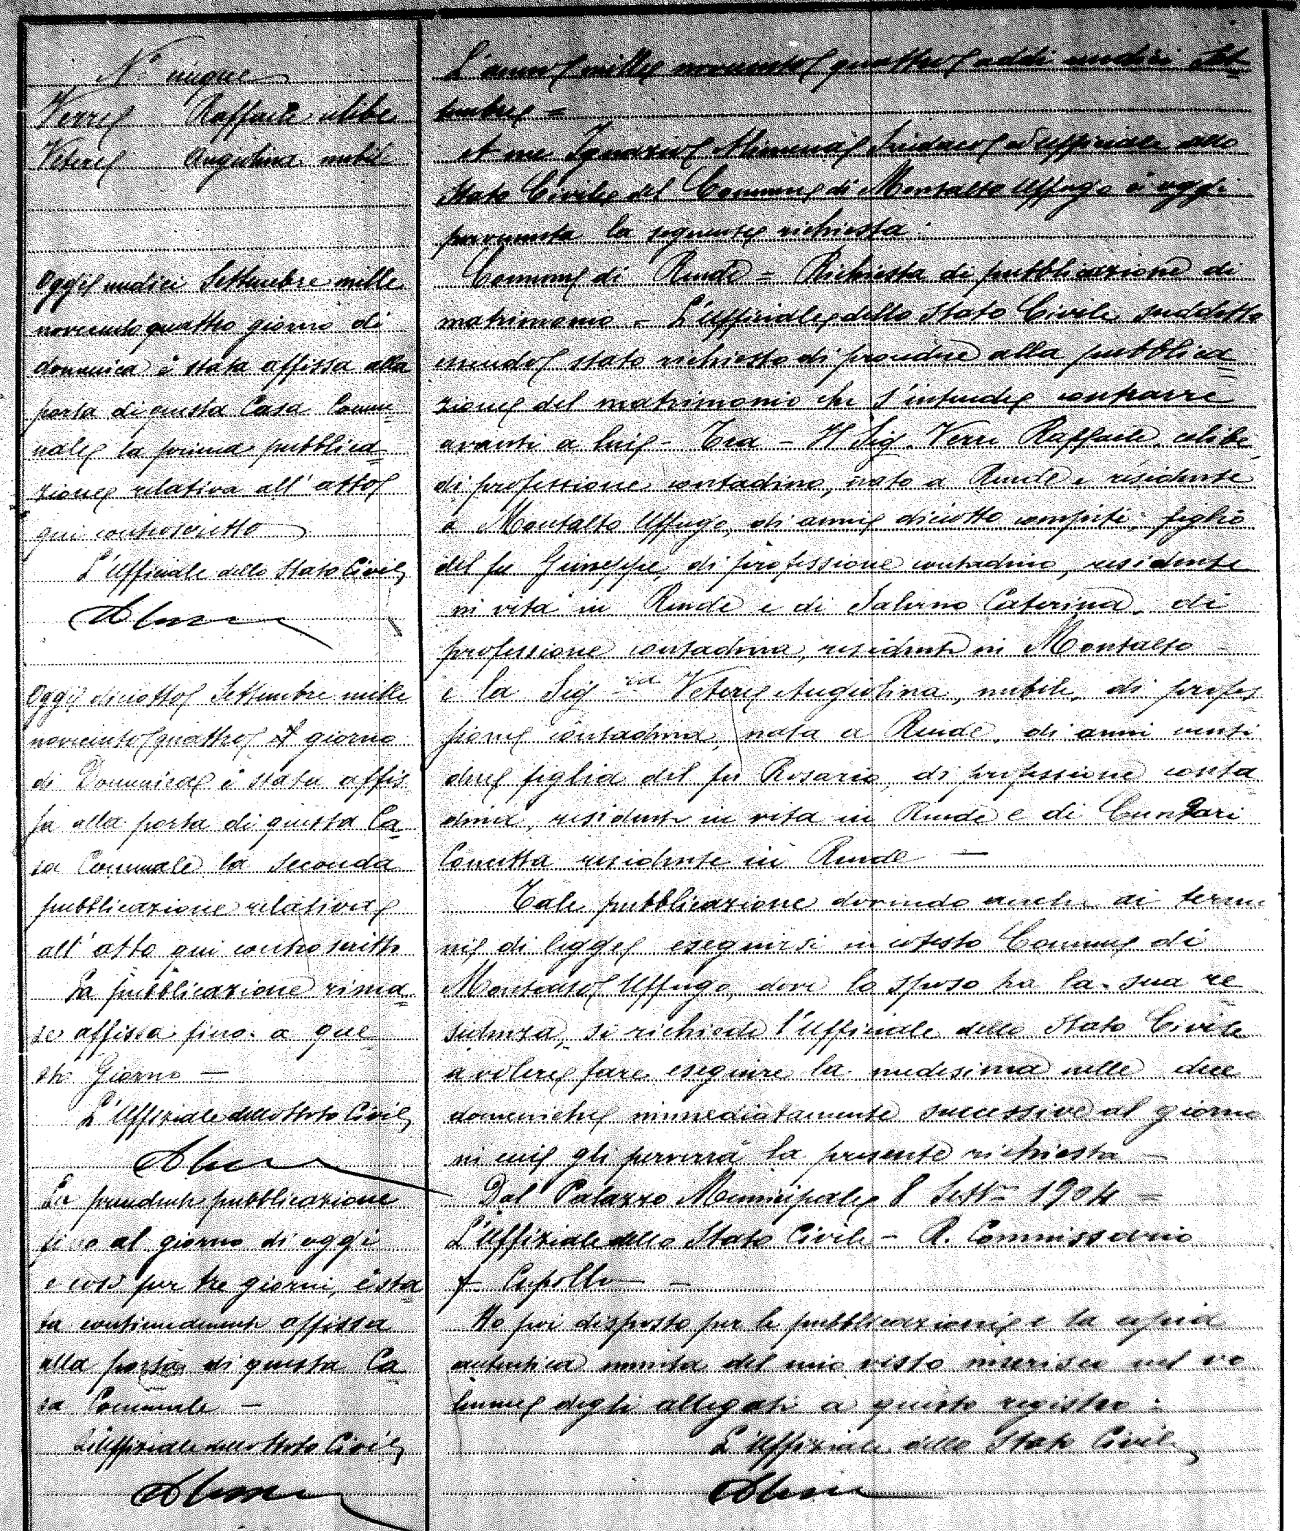 N.º cinque
Verre Raffaele celibe
Vetere Angiolina nubile
Oggi undici Settembre mille
novecento quattro giorno di
domenica è stata affissa alla
porta di questa Casa Comu=
nale la prima pubblica=
zione relativa all'atto
qui controscritto
L'Uffiziale dello Stato Civile
Oggi diciotto Settembre mille
novecento quattro giorno
di Domenica è stata affis
sa alla porta di questa Ca=
sa Comunale la seconda
pubblicazione relativa
all'atto qui controscritto
La pubblicazione rima=
se affissa fino a que=
sto Giorno —
L'Uffiziale dello Stato Civile
La precedente pubblicazione
fino al giorno di oggi
e così per tre giorni, è sta=
ta continuamente affissa
alla porta di questa Ca=
sa Comunale —
L'Uffiziale dello Stato Civile
L'anno mille novecento quattro addi undici Set=
tembre =
A me Ignazio Alimena Sindaco ed uffiziale dello
Stato Civile del Comune di Montalto Uffugo è oggi
pervenuta la seguente richiesta:
Comune di Rende = Richiesta di pubblicazione di
matrimonio = L'Uffiziale dello Stato Civile suddetto
essendo stato richiesto di procedere alla pubblica=
zione del matrimonio che s'intende contrarre
avanti a lui - Tra - Il Sig. Verre Raffaele, celibe,
di professione contadino, nato a Rende e residente
a Montalto Uffugo, di anni diciotto compiti, figlio
del fu Giuseppe, di professione contadino, residente
in vita in Rende e di Salerno Caterina, di
professione contadina, residente in Montalto
e la Sig.ra Vetere Angiolina, nubile, di profes
sione contadina, nata a Rende, di anni venti
due figlia del fu Rosario, di professione conta
dina, residente in vita in Rende e di Cunsari
Concetta residente in Rende —
Tale pubblicazione dovendo anche ai termi
ni di legge eseguirsi in cotesto Comune di
Montalto Uffugo, dove lo sposo ha la sua re
sidenza, si richiede l'Uffiziale dello Stato Civile
a volere fare eseguire la medesima nelle due
domeniche immediatamente successive al giorno
in cui gli perverrà la presente richiesta —
Dal Palazzo Municipale 8 Sett.re 1904 =
L'Uffiziale dello Stato Civile - R. Commissario
f. Cupolla —
Ho poi disposto per le pubblicazioni e la copia
autentica munita del mio visto inserisco nel vo
lume degli allegati a questo registro.
L'Uffiziale dello Stato Civile